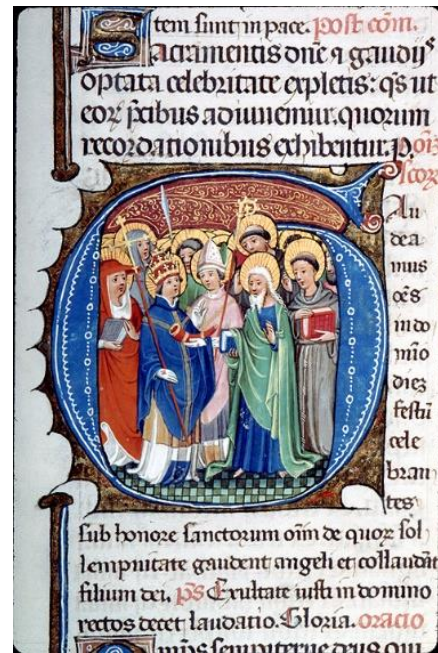 Item sunt in pace. post com.
Sacramentis dne ⁊ gaudijs
optata celebritate expletis: qs ut
eor pcibus adiuuemur. quorum
recordationibus exhibentur. P. oim
scor
Gau
dea
mus
oēs
in do
mino
diez
festū
cele
bran
tes
sub honore sanctorum oīm de quoꝝ sol
lempnitate gaudent angeli et collaudāt
filium dei. ps Exultate iusti in domino
rectos decet laudatio. Gloria. oracio
Omps sempiterne deus qui